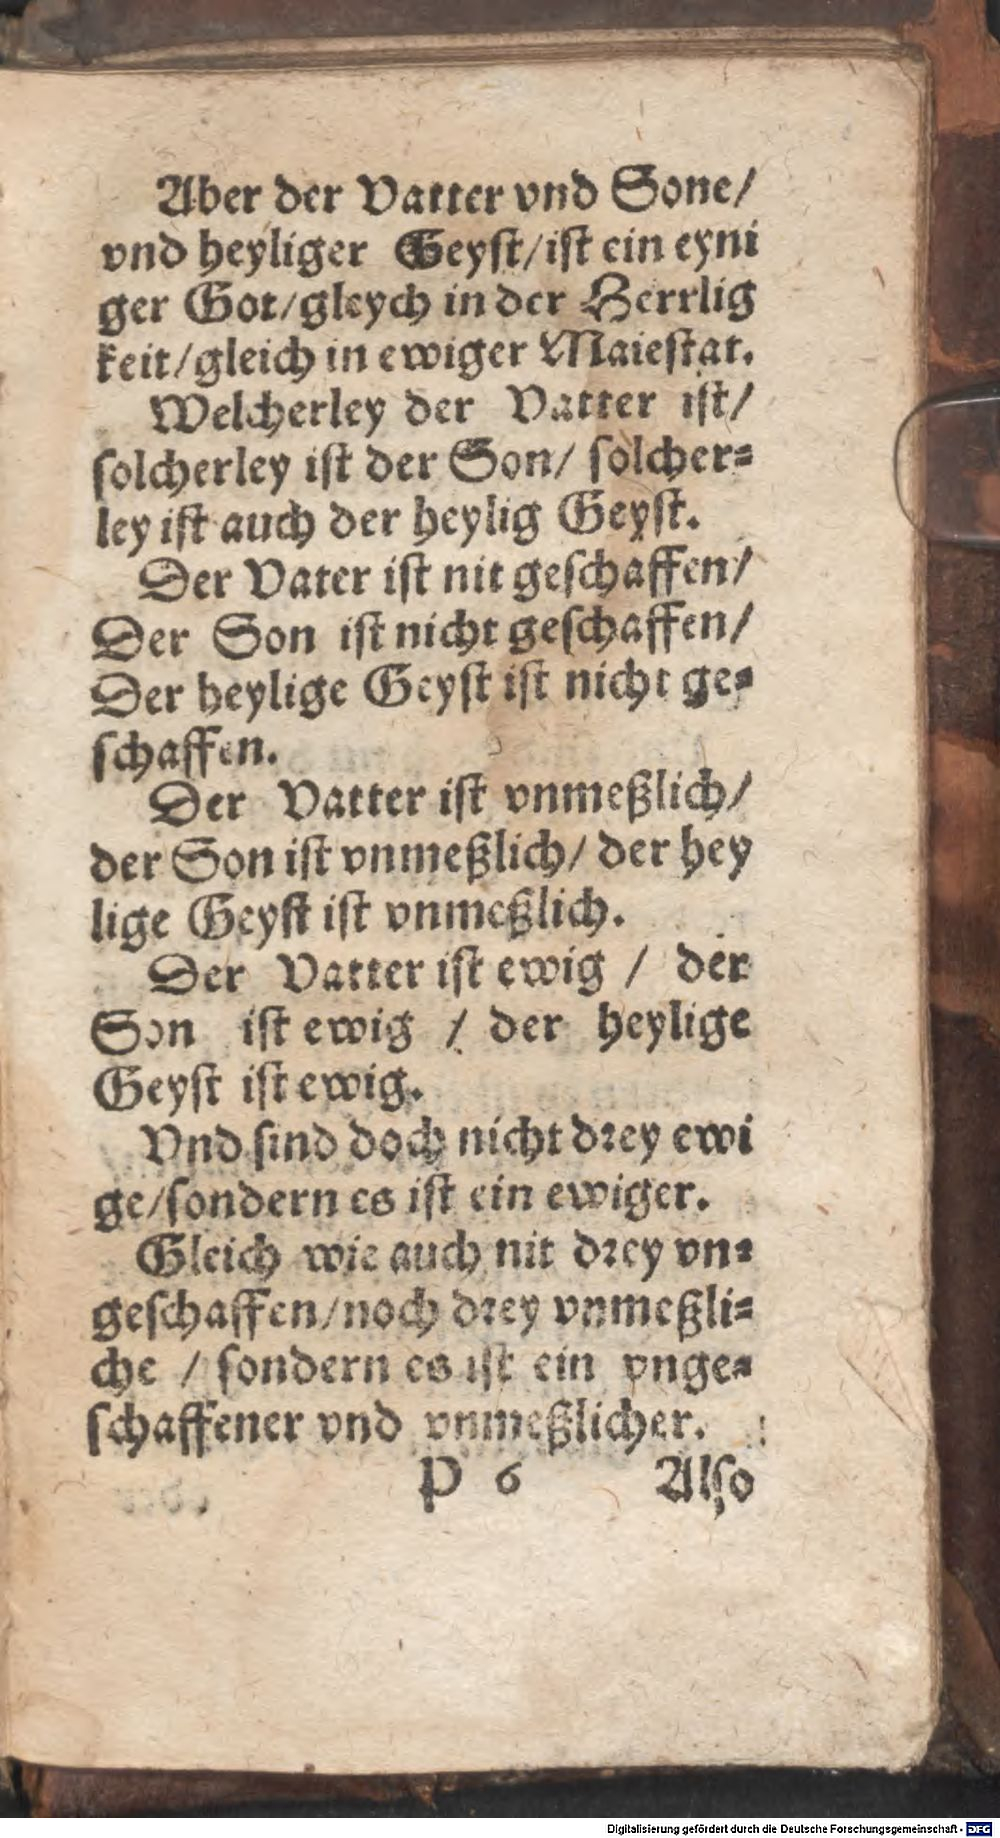 Aber der Vatter vnd Sone/
vnd heyliger Geyſt/iſt ein eyni
ger Got/gleych in der Herrlig
keit/gleich in ewiger Maieſtat.
Welcherley der Vatter iſt/
ſolcherley iſt der Son/ ſolcher⸗
ley iſt auch der heylig Geyſt.
Der Vater iſt nit geſchaffen/
Der Son iſt nicht geſchaffen/
Der heylige Geyſt iſt nicht ge⸗
ſchaffen.
Der Vatter iſt vnmeßlich/
der Son iſt vnmeßlich/ der hey
lige Geyſt iſt vnmeßlich.
Der Vatter iſt ewig / der
Son iſt ewig / der heylige
Geyſt iſt ewig.
Vnd ſind doch nicht drey ewi
ge/ſondern es iſt ein ewiger.
Gleich wie auch nit drey vn⸗
geſchaffen/noch drey vnmeßli⸗
che / ſondern es iſt ein vnge⸗
ſchaffener vnd vnmeßlicher.
P 6 Alſo
Digitalisierung gefördert durch die Deutsche Forschungsgemeinschaft - DFG